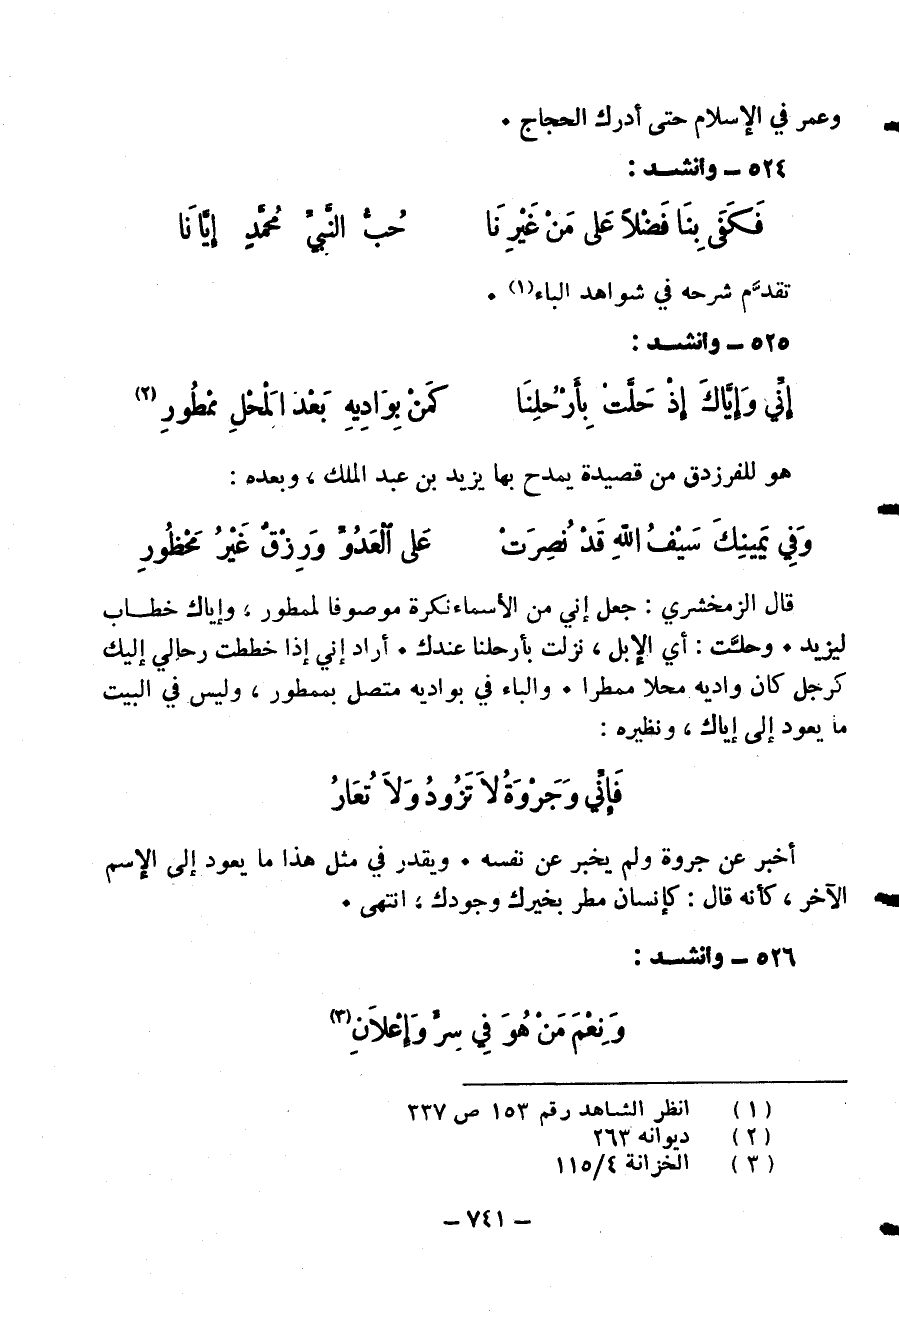 وعمر في الإسلام حتى أدرك الحجاج ٠
٥٢٤ ــ وانشــد :
فَكَفَى بِنَا فَضْلاً عَلى مَنْ غَيْرِنَا حُبُّ النَّبيِّ مُحَمَّدٍ إِيَّانَا
تقدَّم شرحه في شواهد الباء(١) ٠
٥٢٥ ــ وانشــد :
إِنِّي وَإِيَّاكَ إِذْ حَلَّتْ بِأَرْحُلِنَا كَمَنْ بِوَادِيهِ بَعْدَ المَحْلِ مَمْطُورِ (٢)
هو للفرزدق من قصيدة يمدح بها يزيد بن عبد الملك ، وبعده :
وَفي يَمِينِكَ سَيْفُ اللّهِ قَدْ نُصِرَتْ عَلى الْعَدُوِّ وَرِزْقٌ غَيْرُ مَحْظُورِ
قال الزمخشري : جعل إني من الأسماء نكرة موصوفا لممطور ، وإياك خطــاب
ليزيد ٠ وحلـَّت : أي الإبل ، نزلت بأرحلنا عندك ٠ أراد إني إذا خططت رحالي إليك
كرجل كان واديه محلا ممطرا ٠ والباء في بواديه متصل بممطور ، وليس في البيت
ما يعود إلى إياك ، ونظيره :
فَإِنِّي وَجَرْوَةُ لاَ تَزُودُ وَلاَ تُعَارُ
أخبر عن جروة ولم يخبر عن نفسه ٠ ويقدر في مثل هذا ما يعود إلى الإسم
الآخر ، كأنه قال : كإنسان مطر بخيرك وجودك ؛ انتهى ٠
٥٢٦ ــ وانشــد :
وَنِعْمَ مَنْ هُوَ في سِرٍّ وَإِعْلاَنِ(٣)
(١) انظر الشاهد رقم ١٥٣ ص ٣٣٧
(٢) ديوانه ٢٦٣
(٣) الخزانة ١١٥/٤
ــ ٧٤١ ــ